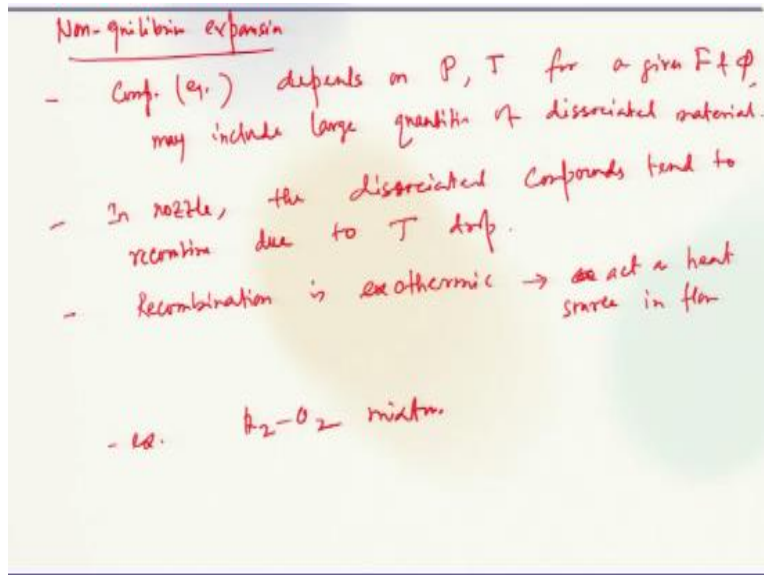 Non-equilibrium expansion
- Comp. (eq.) depends on P, T for a given F & φ,
may include large quantities of dissociated material.
- In nozzle, the dissociated compounds tend to
recombine due to T drop.
- Recombination is exothermic → act a heat
source in flow
- ex. H2-O2 mixtur.